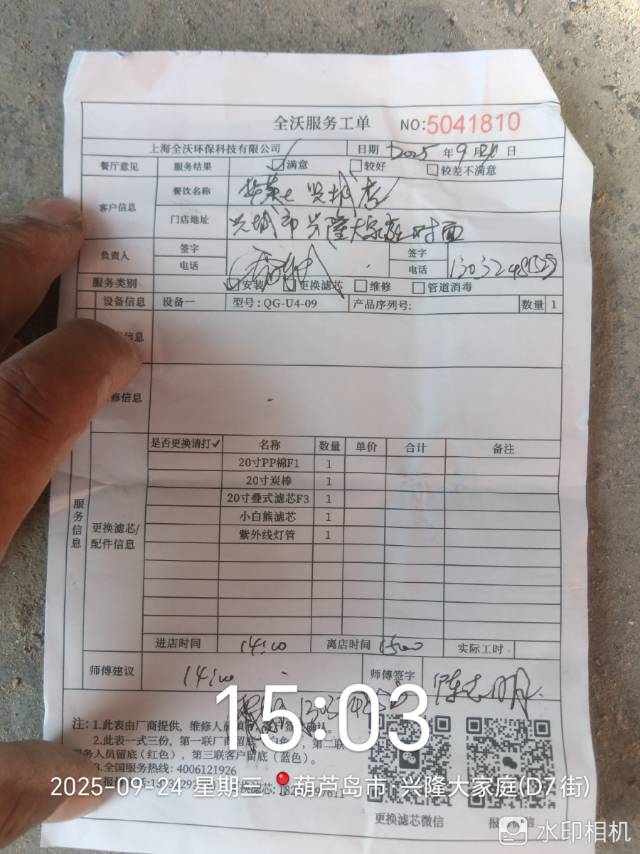 全沃服务工单 NO:5041810
上海全沃环保科技有限公司 日期 2025 年 9 月 日
餐厅意见 服务结果 满意 较好 较差不满意
客户信息 餐饮名称
门店地址 兴城市兴隆大家庭对面
负责人 签字 电话 签字 电话
服务类别 安装 更换滤芯 维修 管道消毒
设备信息 设备一 型号: QG-U4-09 产品序列号: 数量 1
信息
修信息
服务信息
更换滤芯/配件信息
是否更换请打✓ 名称 数量 单价 合计 备注
20寸PP棉F1 1
20寸炭棒 1
20寸叠式滤芯F3 1
小白熊滤芯 1
紫外线灯管 1
进店时间 14:00 离店时间 1500 实际工时
师傅建议 14:00 师傅签字 陈志明
注: 1.此表由厂商提供，维修人
2.此表一式三份，第一联厂商留底
服务人员留底(红色)，第三联客户留底(蓝色)。
3.全国服务热线: 4006121926
15:03
2025-09-24 星期三 葫芦岛市·兴隆大家庭(D7街)
更换滤芯微信
水印相机